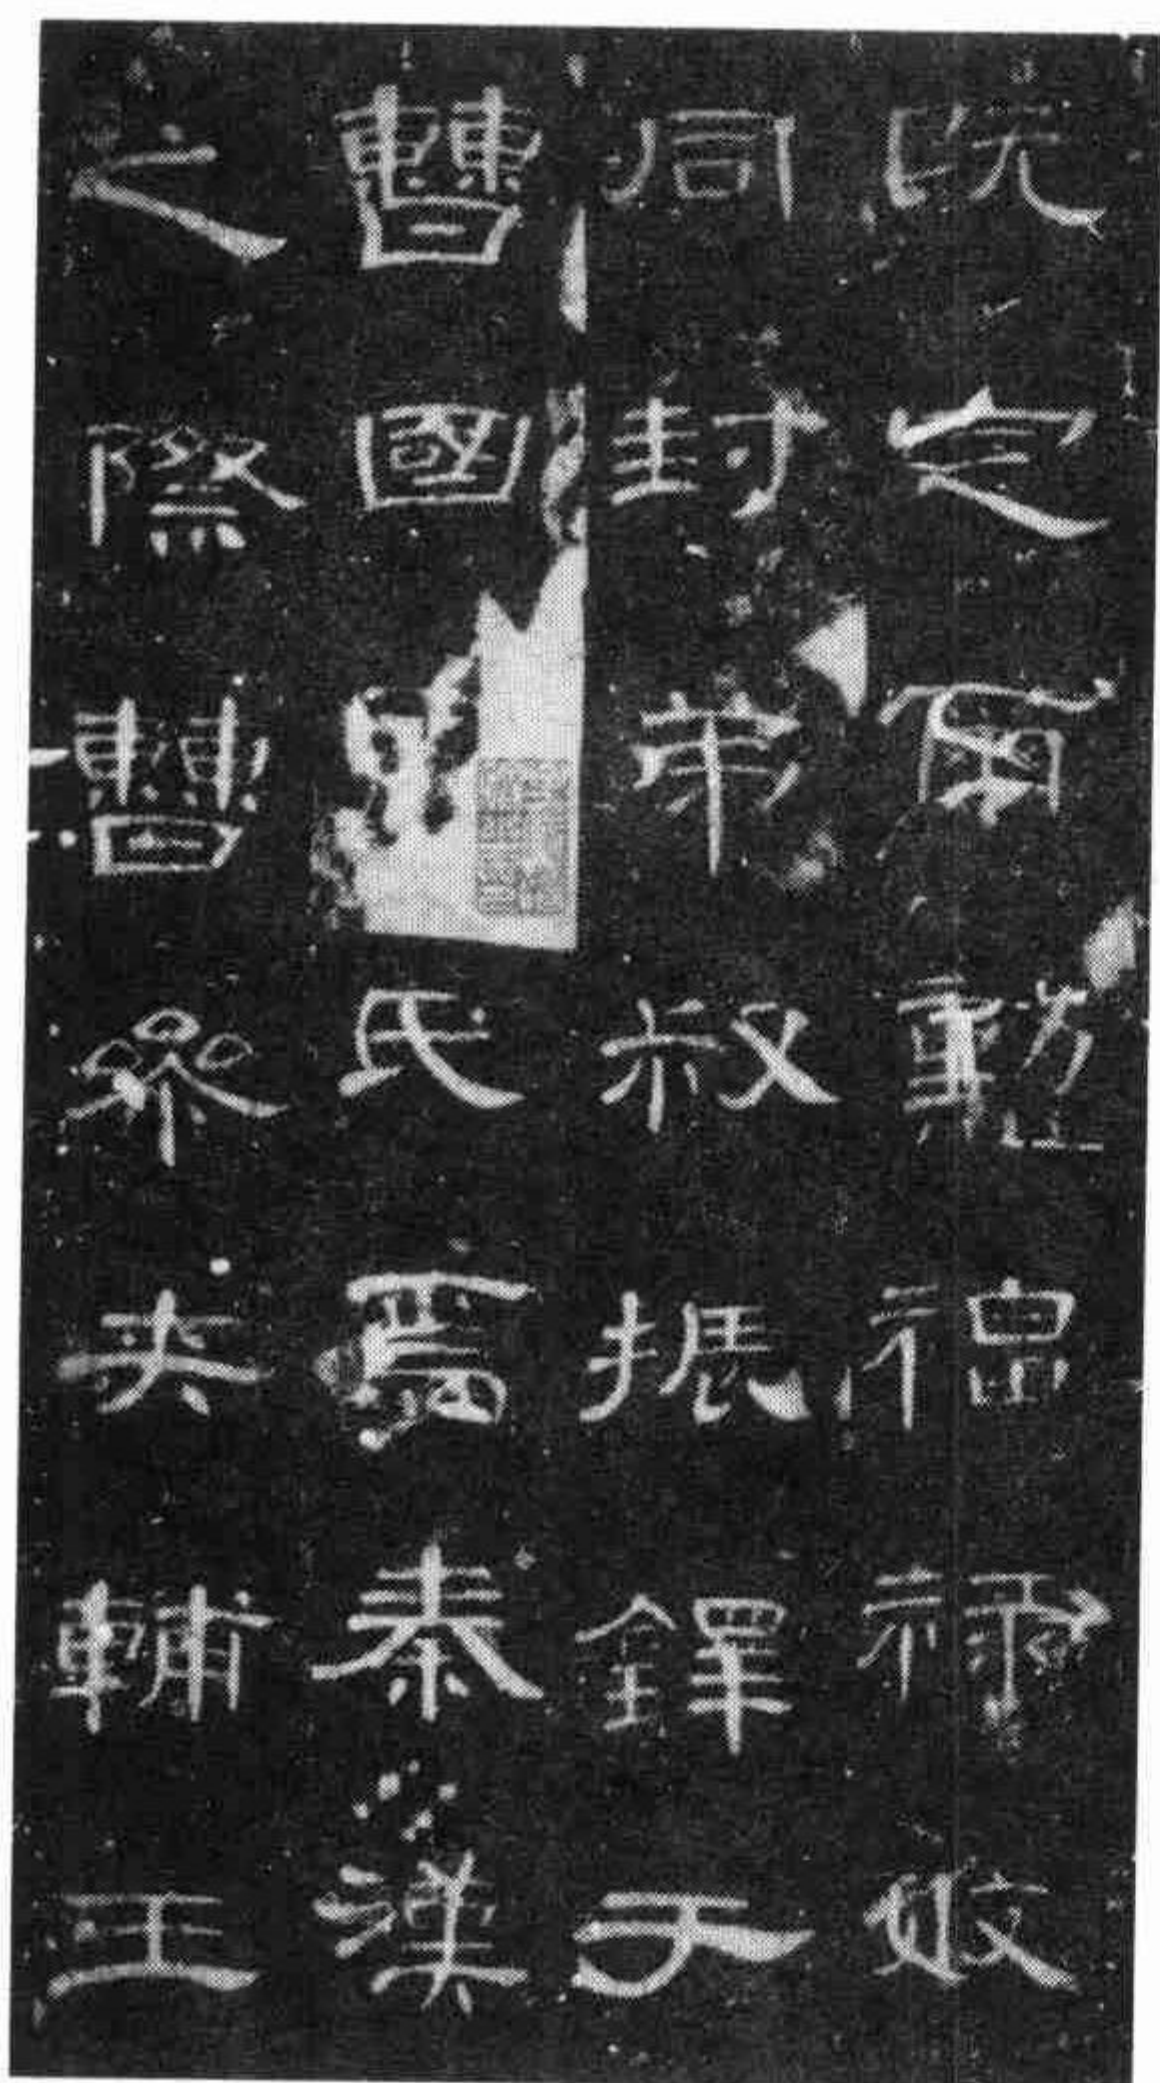 既定爾勲福祿攸
同封弟叔振鐸于
曹國氏焉秦漢
之際曹參夾輔王